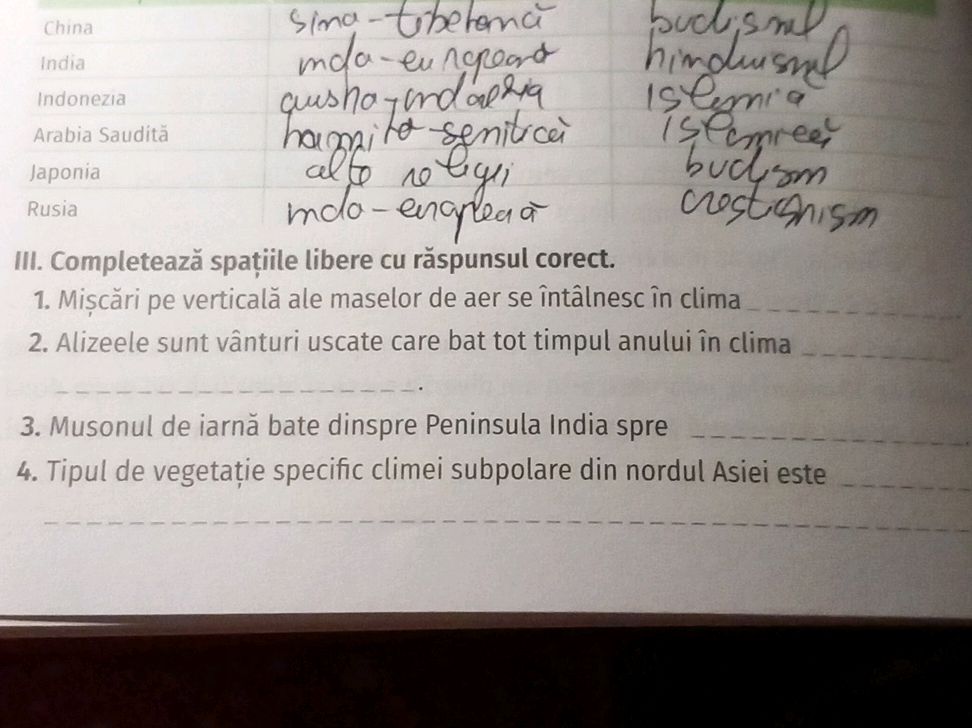 China sino-tibetană budismul
India indo-europeană hinduismul
Indonezia islamică
Arabia Saudită hamito-semitică islamică
Japonia alte religii budism
Rusia indo-europeană creștinism
III. Completează spațiile libere cu răspunsul corect.
1. Mișcări pe verticală ale maselor de aer se întâlnesc în clima
2. Alizeele sunt vânturi uscate care bat tot timpul anului în clima
.
3. Musonul de iarnă bate dinspre Peninsula India spre
4. Tipul de vegetație specific climei subpolare din nordul Asiei este